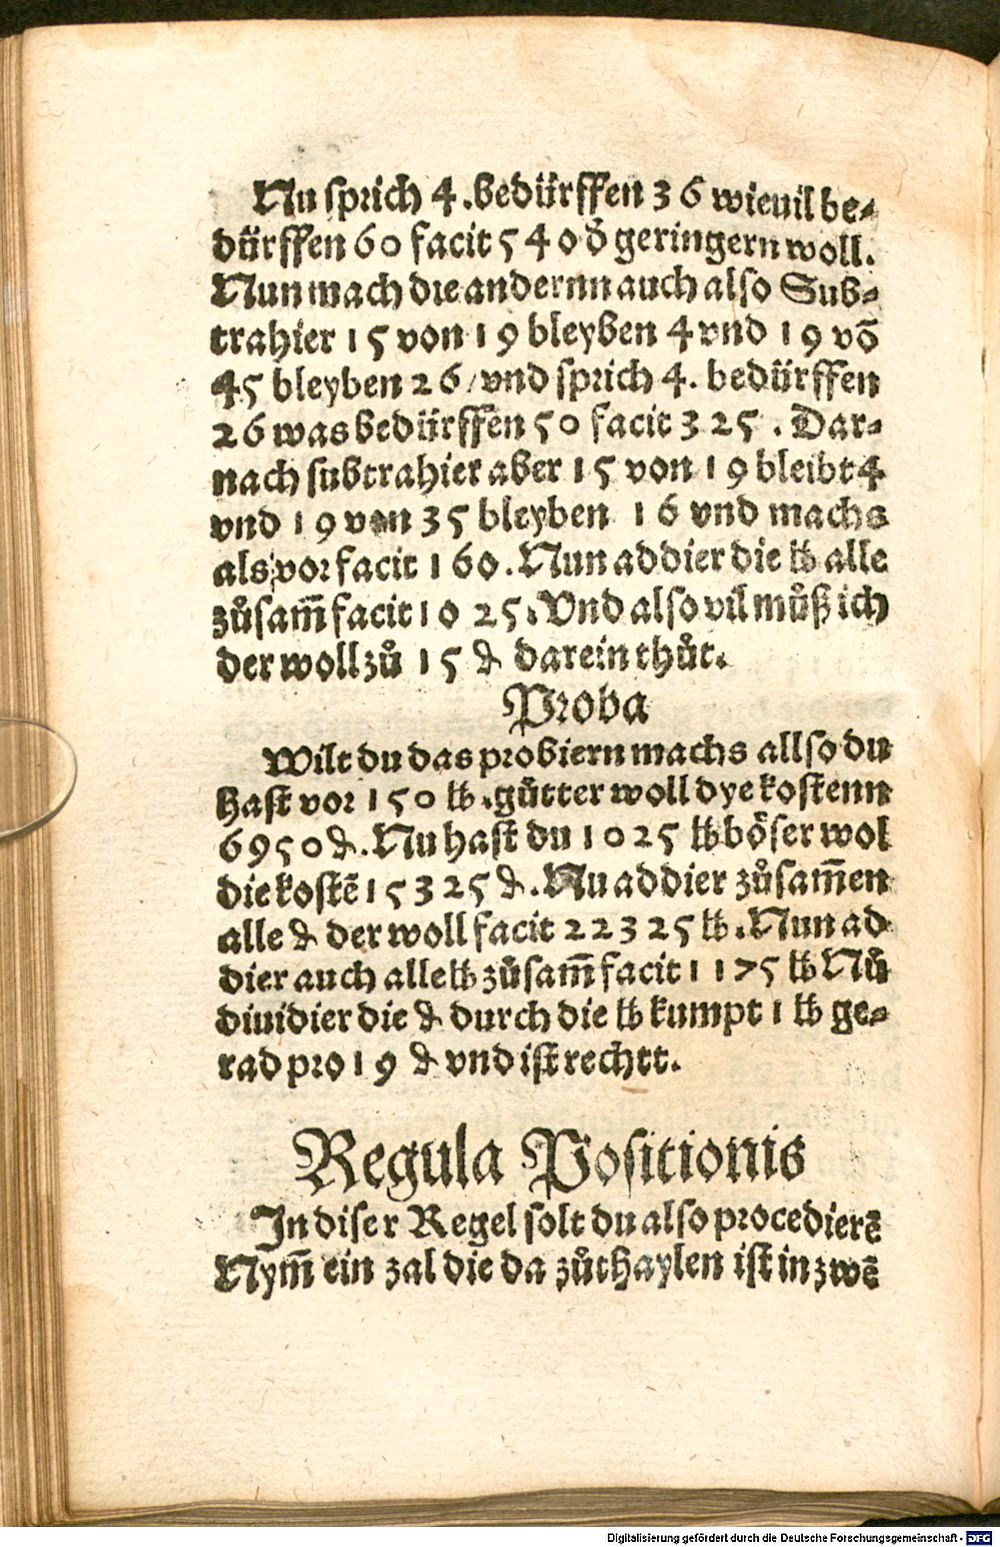 Nu sprich 4 . bedürffen 3 6 wieuil be⸗
dürffen 6 0 facit 5 4 0 đ geringern woll.
Nun mach die andernn auch also Sub⸗
trahier 1 5 von 1 9 bleyben 4 vnd 1 9 võ
4 5 bleyben 2 6 / vnd sprich 4 . bedürffen
2 6 was bedürffen 5 0 facit 3 2 5 . Dar⸗
nach subtrahier aber 1 5 von 1 9 bleibt 4
vnd 1 9 von 3 5 bleyben 1 6 vnd machs
als vor facit 1 6 0 . Nun addier die ℔ alle
zůsam̃ facit 1 0 2 5 . Vnd also vil můß ich
der woll zů 1 5 ₰ darein thůt.
Proba
Wilt du das probiern machs allso du
hast vor 1 5 0 ℔ . gůtter woll dye kostenn
6 9 5 0 ₰ . Nu hast du 1 0 2 5 ℔ böser wol
die kostẽ 1 5 3 2 5 ₰ . Nu addier zůsam̃en
alle ₰ der woll facit 2 2 3 2 5 ℔ . Nun ad
dier auch alle ℔ zůsam̃ facit 1 1 7 5 ℔ Nů
diuidier die ₰ durch die ℔ kumpt 1 ℔ ge⸗
rad pro 1 9 ₰ vnd ist rechtt.
Regula Positionis
In diser Regel solt du also procedierẽ
Nym̃ ein zal die da zůthaylen ist in zwẽ
Digitalisierung gefördert durch die Deutsche Forschungsgemeinschaft - DFG